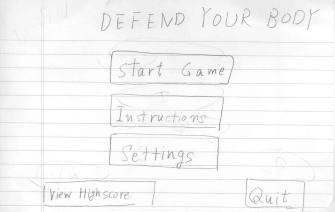 DEFEND YOUR BODY
Start Game
Instructions
Settings
View Highscore
Quit